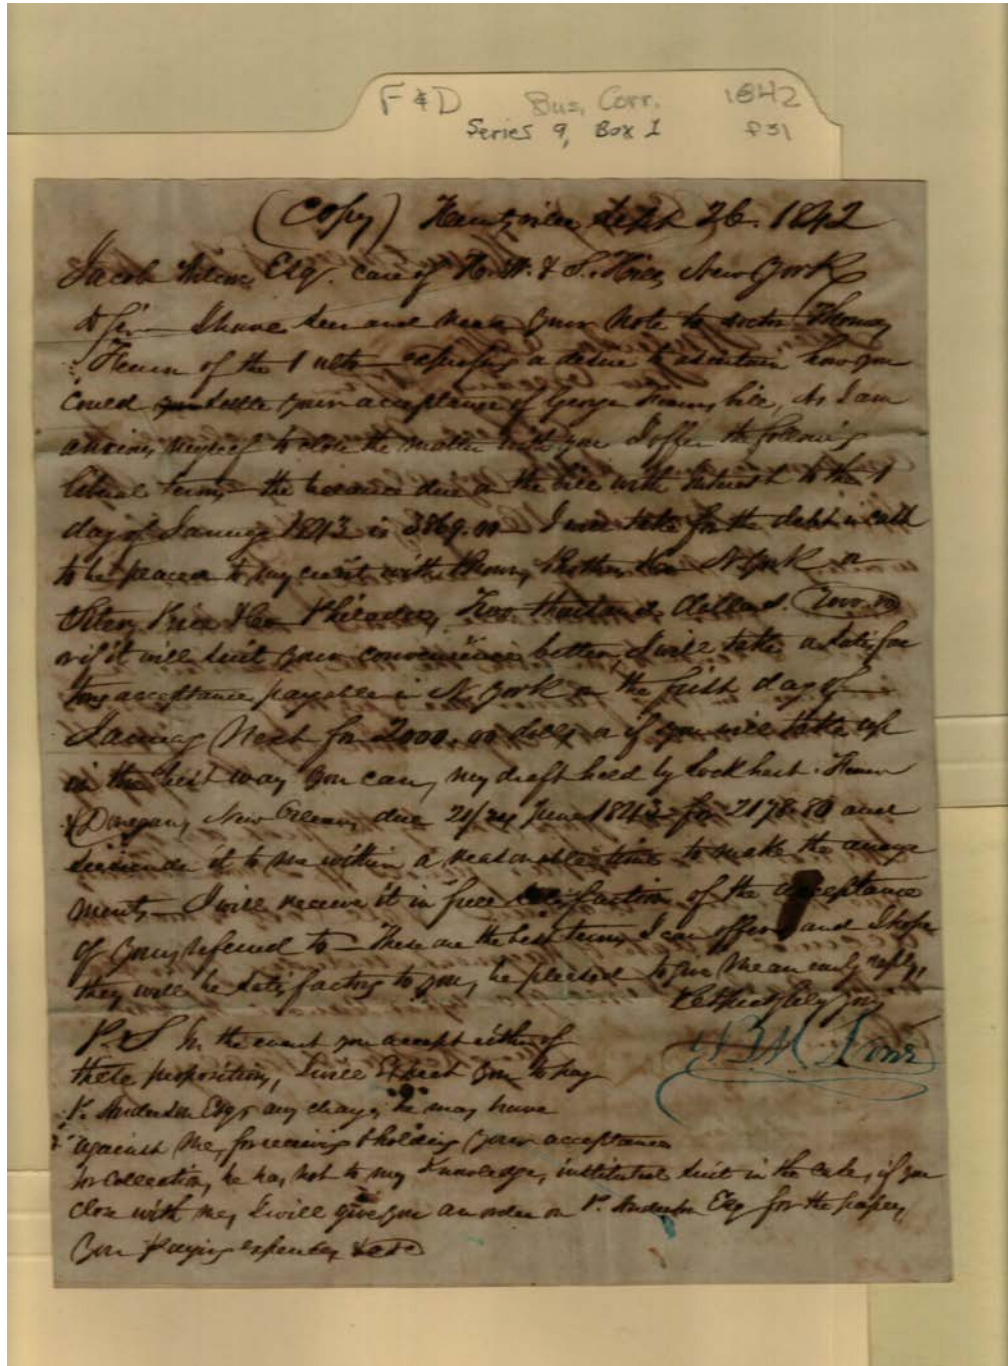 F & D Bus. Corr. 1842
Series 9, Box 1 f31
(Copy) Huntsville Sept 26. 1842
Jacob Esq. care of H. W. & S. New York
D Sir I have seen and your note to doctor Thomas
Fearn of the 1 ulto expressing a desire to ascertain how you
could settle your acceptance of George bill, As I am
anxious myself to close the matter with you I offer the following
liberal terms the balance due on the bill with Interest to the 1
day of January 1843 is 3869.00 I will take for the debt in cash
to be placed to my credit with Brown, Brothers & Co N. York or
& Co Philada, Two thousand dollars. (2000.00)
or if it will suit your convenience better, I will take a satisfac
tory acceptance payable in N. York on the first day of
January Next for 2000.00 dolls or if you will take up
in the best way you can, my draft held by Lockhart. Fearn
& Donegan, New Orleans, due 21/24 June 1843 for 2178.80 and
surrender it to me within a reasonable time to make the arrange
ments I will receive it in full satisfaction of the acceptance
of yours referred to These are the best terms I can offer and I hope
they will be satisfactory to you, be pleased to give me an early reply,
Respectfully yours
P.S In the event you accept either of
these propositions, I will Expect you to pay
P. Anderson Esqr any charges he may have
against me, for receiving & holding your acceptance
for collection, he has, not to my Knowledge, instituted suit in the case, if you
close with me, I will give you an order on P. Anderson Esq for the papers,
you paying expenses